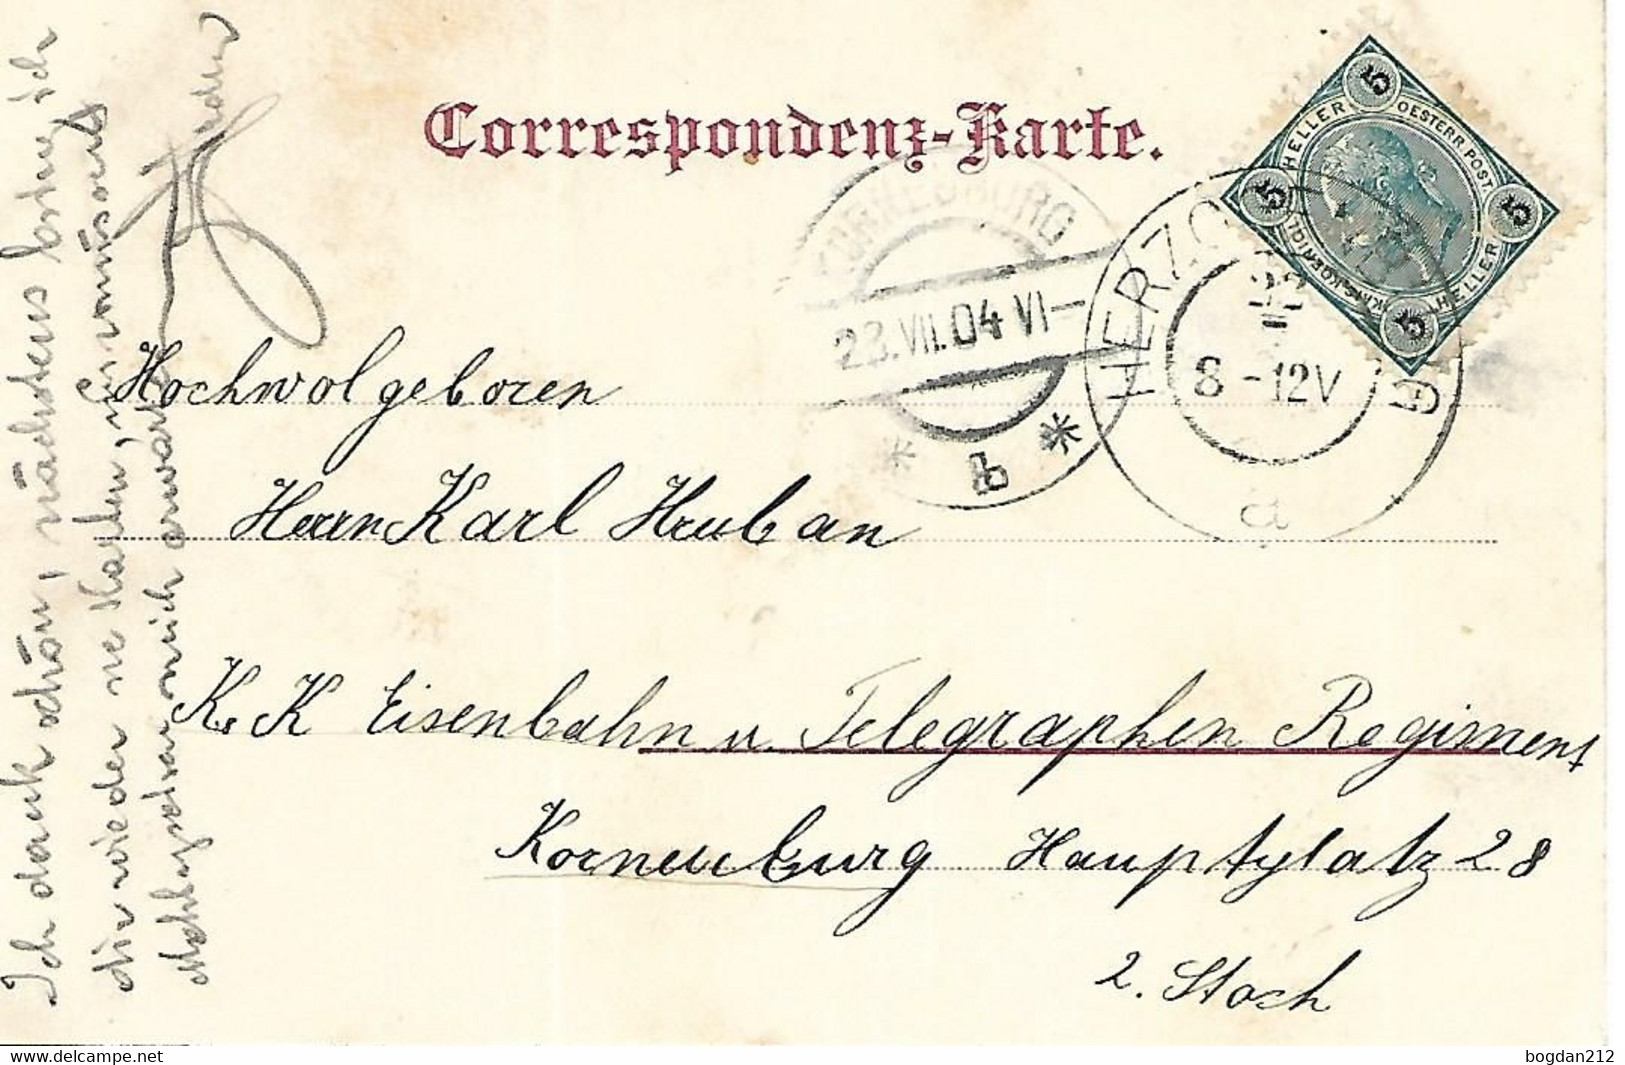 Correspondenz-Karte.
5
HELLER
OESTERR. POST.
5
5
KAIS. KOENIGL
HELLER
5
KORNEUBURG
23.VII.04 VI-
* b *
HERZO
22
8 - 12V
a
Hochwolgeboren
Herrn Karl Hruban
K. K Eisenbahn u. Telegraphen Regiment
Korneuburg Hauptplatz 28
2. Stoch
Ich dank schön, nächstens bring ich
dir wieder ne Karten,
mich erwart
www.delcampe.net
bogdan212